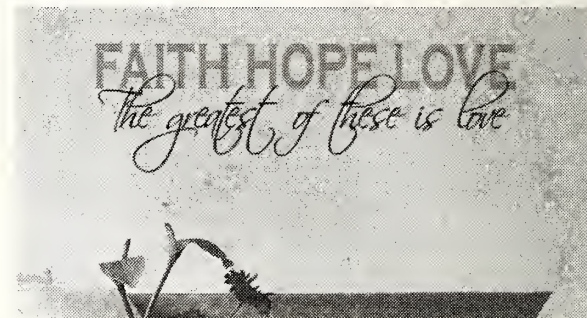 FAITH HOPE LOVE
The greatest of these is love